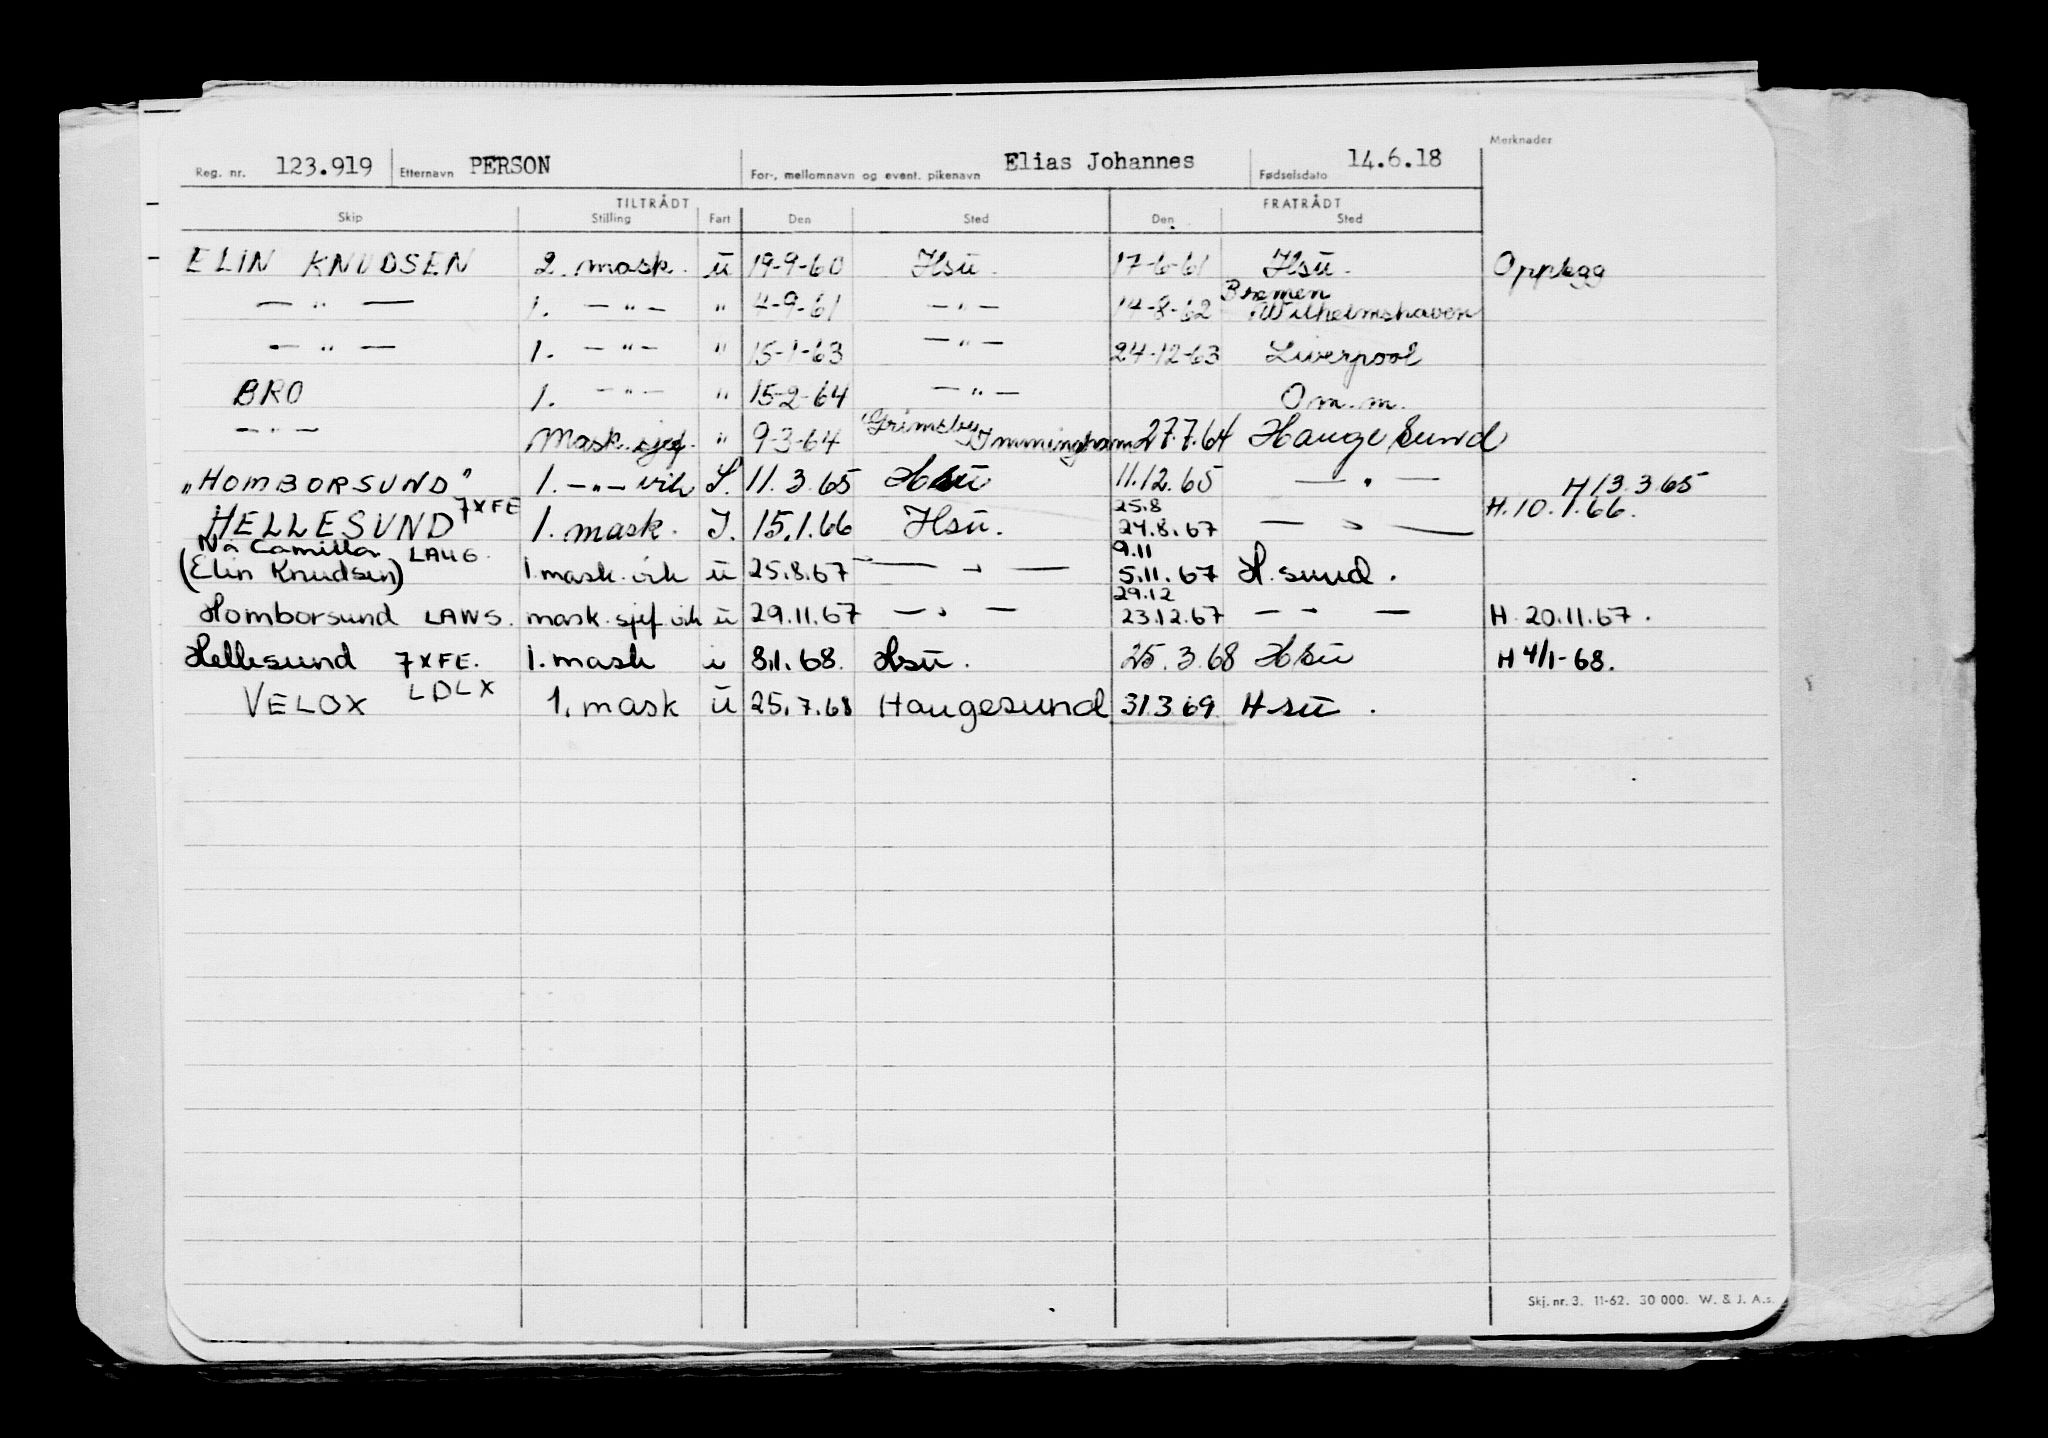 Merknader
Reg. nr. 123.919 Etternavn PERSON For-, mellomnavn og event. pikenavn Elias Johannes Fødselsdato 14.6.18
TILTRÅDT FRATRÅDT
Skip Stilling Fart Den Sted Den Sted
ELIN KNUDSEN 2. mask. u 19-9-60 Hsu. 17-6-61 Hsu. Opplegg
— " — 1. — " — " 4-9-61 — " — 14-8-62 Bremen Wilhelmshaven
— " — 1. — " — " 15-1-63 — " — 24-12-63 Liverpool
BRO 1. — " — " 15-2-64 — " — Om.m.
— " — Mask.sjef. " 9-3-64 Grimsby Immingham 27.7.64 Haugesund
"HOMBORSUND" 1. — " — vik S. 11.3.65 Hsu 11.12.65 — " — H 13.3.65
HELLESUND 7XFE 1. mask. I. 15.1.66 Hsu. 25.8 24.8.67 — " — H.10.1.66.
Nå Camilla
(Elin Knudsen) LAUG 1. mask. vik u 25.8.67 — " — 9.11 5.11.67 H.sund.
Homborsund LAWS. mask.sjef.vik u 29.11.67 — " — 29.12 23.12.67 — " — H. 20.11.67.
Hellesund 7XFE. 1. mask u 8.1.68. Hsu. 25.3.68 Hsu H 4/1-68.
VELOX LDLX 1. mask u 25.7.68 Haugesund 31.3.69. Hsu.
Skj. nr. 3. 11-62. 30 000. W. & J. A.s.